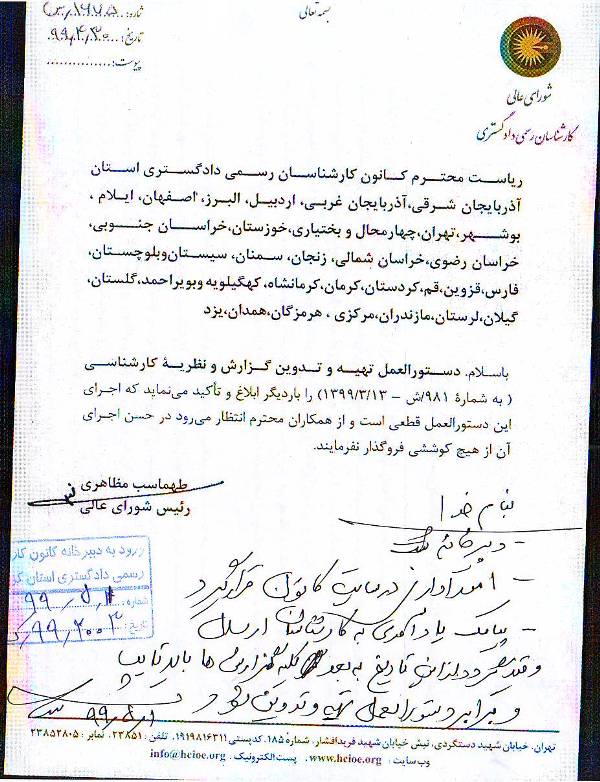 بسمه تعالی
شماره: ۱۶۷۵/ش
تاریخ: ۹۹،۴،۳۰
پیوست:
شورای عالی
کارشناسان رسمی دادگستری
ریاست محترم کانون کارشناسان رسمی دادگستری استان
آذربایجان شرقی،آذربایجان غربی، اردبیل، البرز، اصفهان، ایلام ،
بوشهر،تهران،چهارمحال و بختیاری،خوزستان،خراسان جنوبی،
خراسان رضوی،خراسان شمالی، زنجان، سمنان، سیستان‌وبلوچستان،
فارس،قزوین،قم،کردستان،کرمان،کرمانشاه، کهگیلویه وبویراحمد،گلستان،
گیلان،لرستان،مازندران،مرکزی ، هرمزگان،همدان،یزد
باسلام. دستورالعمل تهیه و تدوین گزارش و نظریهٔ کارشناسی
( به شمارهٔ ۹۸۱/ش – ۱۳۹۹/۳/۱۳) را باردیگر ابلاغ و تأکید می‌نماید که اجرای
این دستورالعمل قطعی است و از همکاران محترم انتظار می‌رود در حسن اجرای
آن از هیچ کوششی فروگذار نفرمایند.
طهماسب مظاهری
رئیس شورای عالی
بنام خدا
- دبیرخانه
- امور اداری در سایت کانون قرار گیرد
- پیامک یادآوری به کارشناسان ارسال
و قید شود از این تاریخ به بعد کلیه گزارش ها باید تایپ
و برابر دستورالعمل تهیه و تدوین شود
ورود به دبیرخانه کانون کار
رسمی دادگستری استان
شماره:
تاریخ:
تهران، خیابان شهید دستگردی، نبش خیابان شهید فریدافشار، شمارهٔ ۱۸۵، کدپستی ۱۹۱۹۸۱۶۳۱۱، تلفن : ۲۳۸۵۱، نمابر : ۲۳۸۵۲۸۰۵
وب سایت : www.hcioe.org ، پست الکترونیک : info@hcioe.org